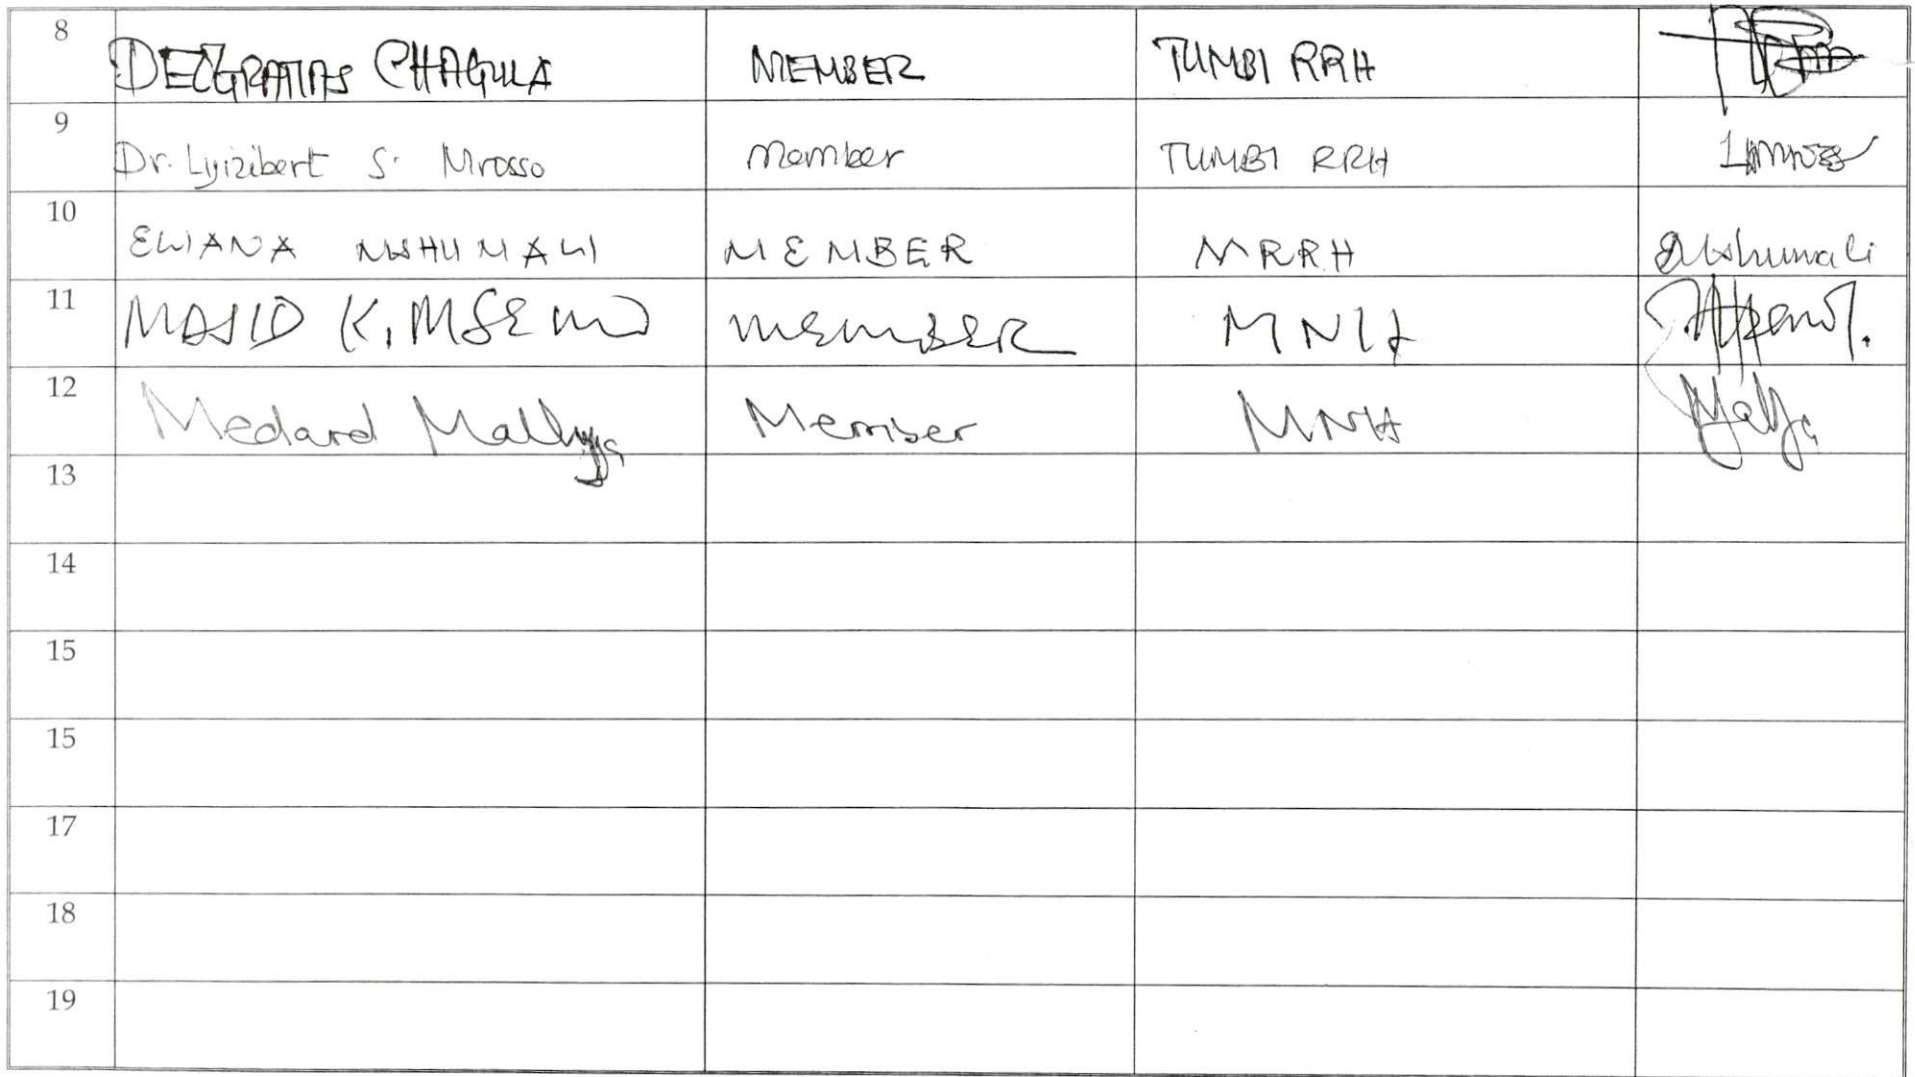 8 DEOGRATIAS CHAGULA MEMBER TUMBI RRH
9 Dr. Lyizibert S. Mrosso Member TUMBI RRH
10 ELIANA MSHUMALI MEMBER MRRH EMshumali
11 MAJID K. MSEMO MEMBER MNH
12 Medard Mallya Member MNH
13
14
15
15
17
18
19